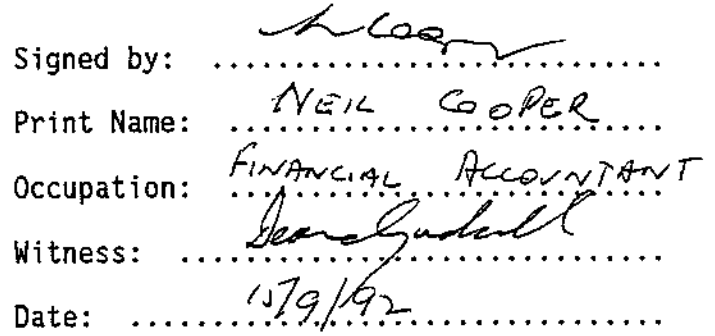 Signed by:
Print Name: NEIL COOPER
Occupation: FINANCIAL ACCOUNTANT
Witness:
Date: 15/9/92